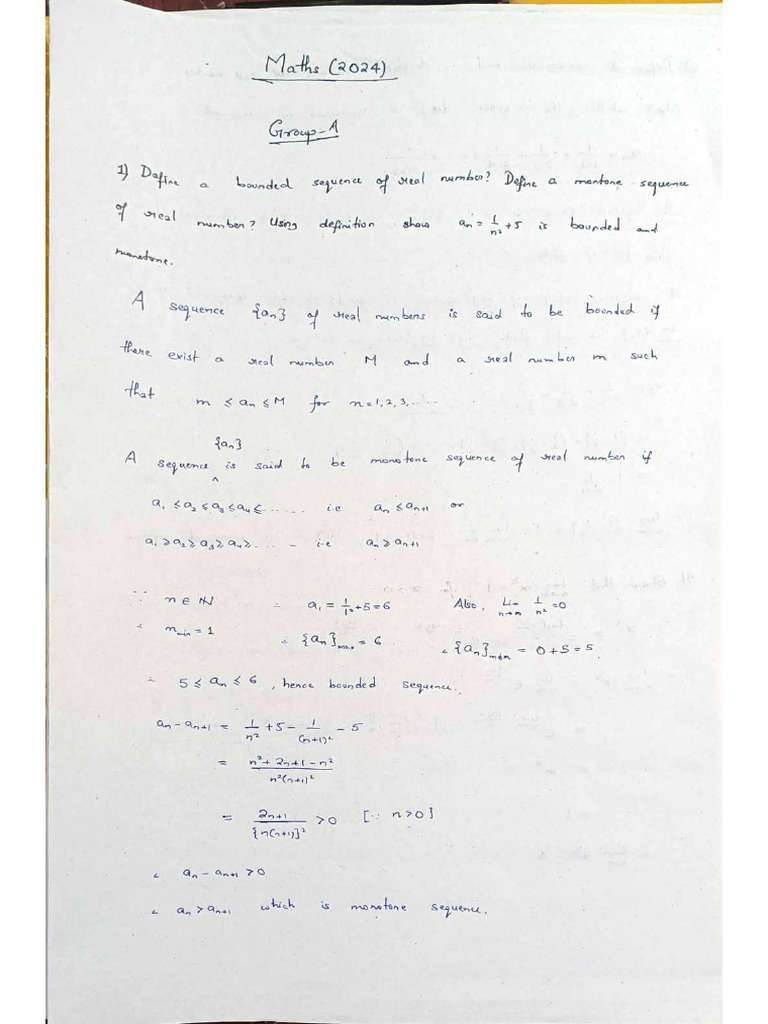 Maths (2024)
Group-A
1) Define a bounded sequence of real number? Define a montone sequence
of real number? Using definition show aₙ = 1/n² + 5 is bounded and
monotone.
A sequence {aₙ} of real numbers is said to be bounded if
there exist a real number M and a real number m such
that m ≤ aₙ ≤ M for n = 1, 2, 3, ......
{aₙ}
A sequence ^ is said to be monotone sequence of real number if
a₁ ≤ a₂ ≤ a₃ ≤ a₄ ≤ ....... i.e aₙ ≤ aₙ₊₁ or
a₁ ≥ a₂ ≥ a₃ ≥ a₄ ≥ ..... - i.e aₙ ≥ aₙ₊₁
∵ n ∈ ℕ ∴ a₁ = 1/1² + 5 = 6 Also, Lim n→∞ 1/n² = 0
∴ nₘᵢₙ = 1 ∴ {aₙ}ₘₐₓ = 6 ∴ {aₙ}ₘᵢₙ = 0 + 5 = 5.
∴ 5 ≤ aₙ ≤ 6, hence bounded sequence.
aₙ - aₙ₊₁ = 1/n² + 5 - 1/(n+1)² - 5
= (n² + 2n + 1 - n²)/(n²(n+1)²)
= (2n+1)/{n(n+1)}² > 0 [∵ n > 0]
∴ aₙ - aₙ₊₁ > 0
∴ aₙ > aₙ₊₁ which is monotone sequence.